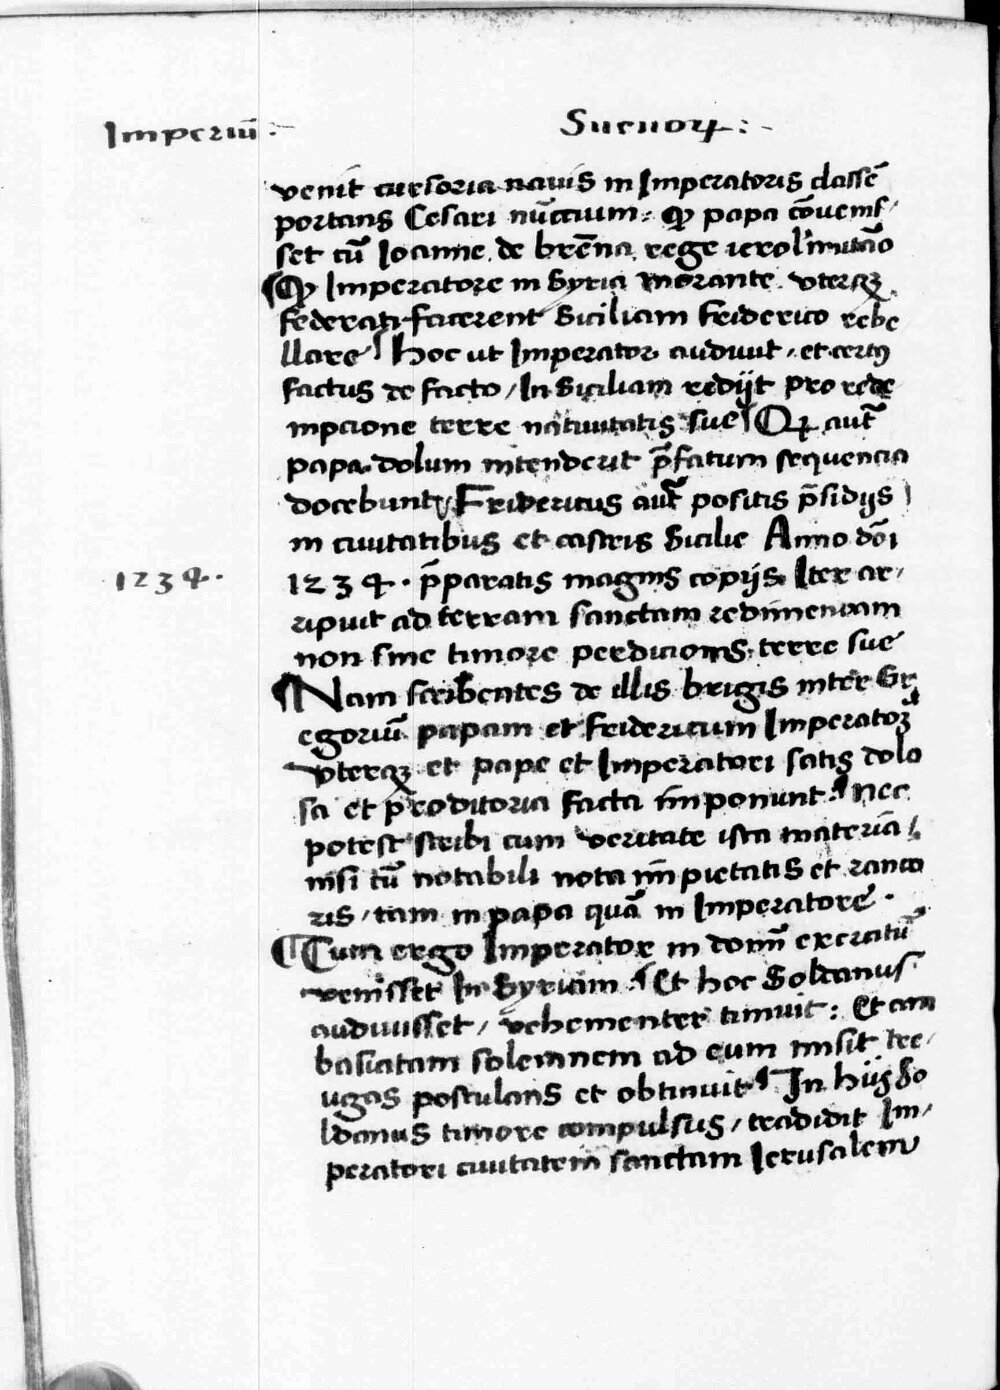 Imperiū :- Sueuoꝝ :-
venit cursoria nauis in Imperatoris classē
portans Cesari nūccium : Qƺ papa cōuenis/
set cū Ioanne de brēna rege ierolimitāo
¶ Qƺ Imperatore in Syria morante vterqꝫ
federati facerent Siciliam Friderico rebe
llare ¶ hoc ut Imperator audiuit / et certꝰ
factus de facto / In Siciliam redijt pro rede
mpcione terre natiuitatis sue ¶ Qƺ aut̄
papa dolum intenderit p̄fatum sequencia
docebunt ¶ Fridericus aut̄ positis p̄sidijs
in ciuitatibus et castris Sicilie Anno dōi
1234 · p̄paratis magnis copijs Iter ar/
1234 ·
ripuit ad terram sanctam redimendam
non sine timore perdicionis terre sue
¶ Nam scribentes de illis brigis inter Gr
egoriū papam et Fridericum Imperatorē
vterqꝫ et pape et Imperatori satis dolo
sa et proditoria facta imponunt ¶ nec
potest scribi cum veritate ista materia
nisi cū notabili nota impietatis et ranco
ris / tam in papa quā in Imperatore ·
¶ Cum ergo Imperator in domī exercitū
venisset In Syriam ¶ Et hoc Soldanus
audiuisset / vehementer timuit : Et am
basiatam solemnem ad eum misit tre/
ugas postulans et obtinuit ¶ In hijs So
ldanus timore compulsus / tradidit Im/
peratori ciuitatem sanctam Ierusalem